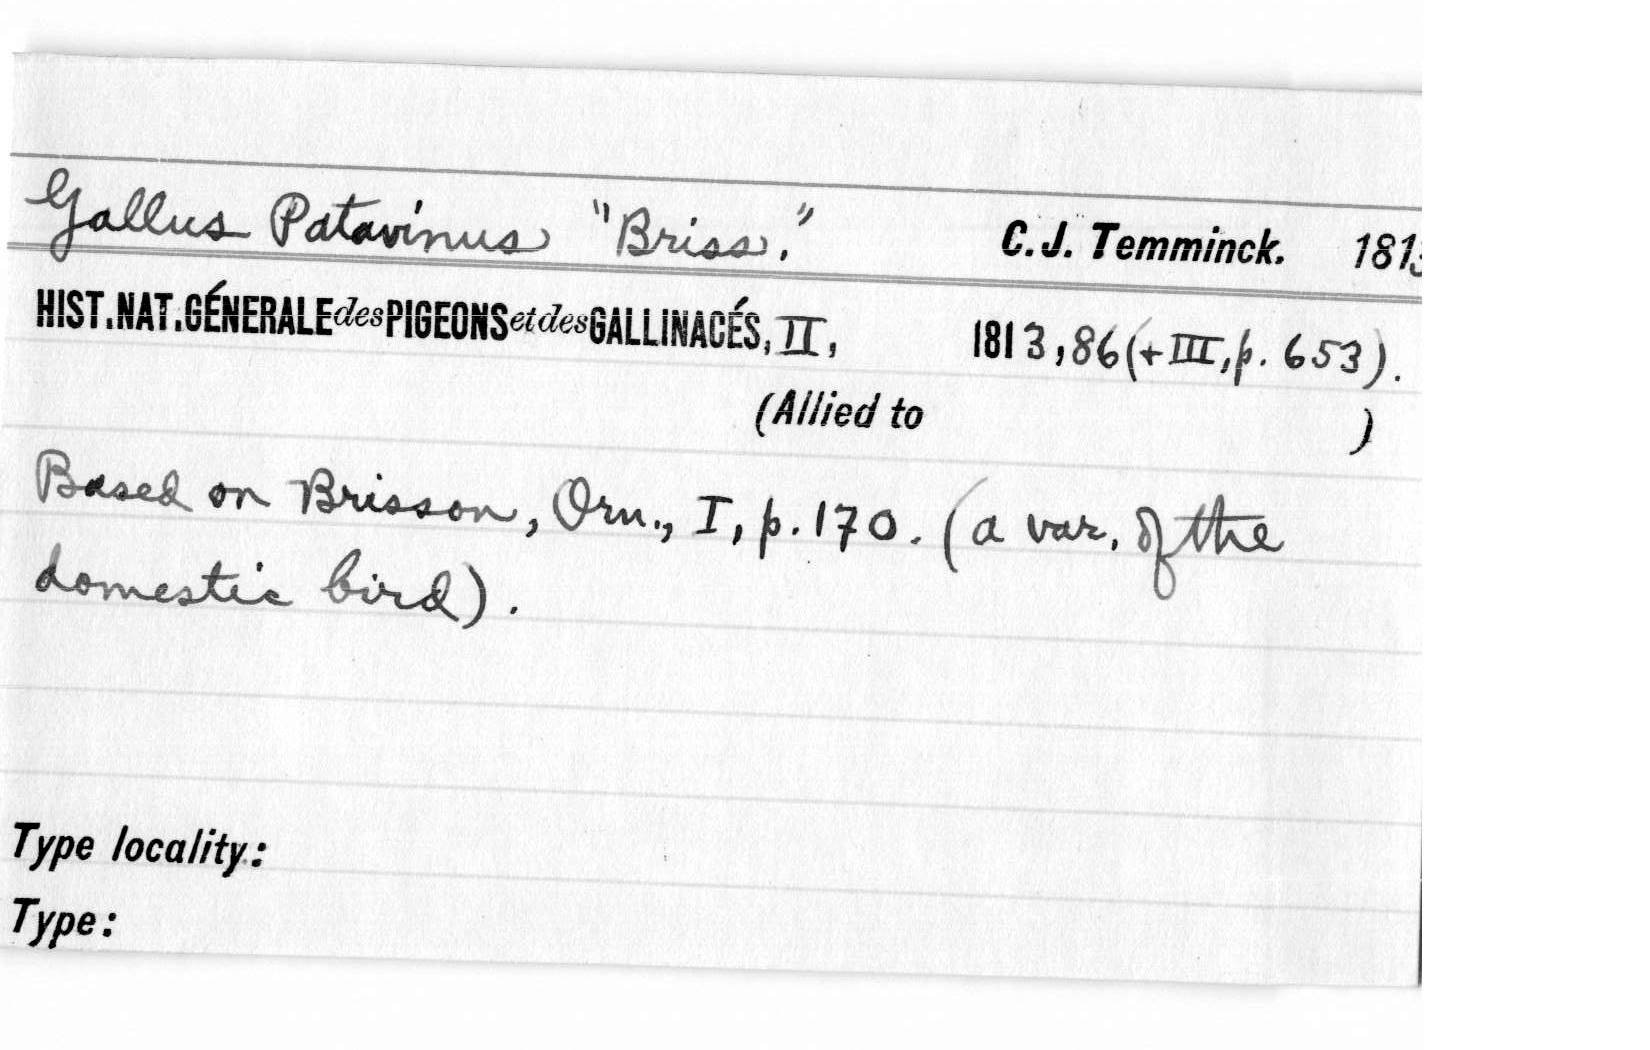 Gallus Patavinus "Briss." C. J. Temminck. 1813
HIST. NAT. GÉNERALE des PIGEONS et des GALLINACÉS, II, 1813, 86 (+ III, p. 653).
(Allied to )
Based on Brisson, Orn., I, p. 170. (a var. of the
domestic bird).
Type locality:
Type: